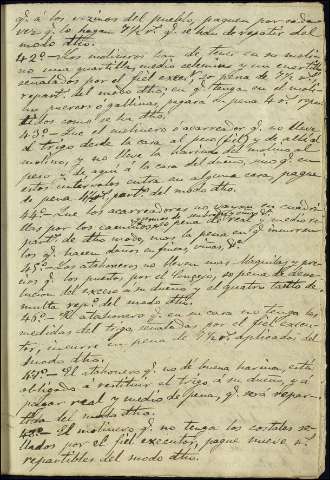 q.e á los vezinos del pueblo, paguen por cada
vez q.e lo hagan 7½ r.s q.e se han de repartir del
modo dho.
42.º Los molineros han de tener en su molino
una quartilla, medio celemin y un quartillo
señalados por el fiel exec.or so pena de 7½ r.s
repart.s del modo dho; en q.e tenga en el molino
puercos ó gallinas, pagará de pena 4 r.s repartidos
como se ha dho.
43.º Que el molinero ó acarreador q.e no lleve
el trigo desde la casa al peso (fiel) y de allí al
molino, y no lleve la harina del molino al
peso y de aqui á la casa del dueño, sino q.e en
estos intervalos entra en alguna casa, pague
de pena r.s part.s del modo dho.
44.º Que los acarreadores no vayan en quadrillas
por los caminos so pena de real y medio repart.s
de dho modo, mas la pena en q.e incurren
los q.e hacen daños en finas, viñas, &.a
45.º Los atahoneros no lleven mas maquilas y precios
q.e los puestos por el Conzejo, so pena de devolucion
del exceso á su dueño y el quatro tanto de
multa rep.s del modo dho.
46.º El atahonero q.e en su casa no tenga las
medidas del trigo, señaladas por el fiel executor,
incurre en pena de 7½ r.s aplicados del
modo dho.
47.º El atahonero q.e no dé buena harina, está
obligado á restituir el trigo á su dueño, y á
pagar real y medio de pena, q.e será repartida
del modo dho.
48.º El molinero q.e no tenga los costales sellados
por el fiel executor, pague nueve r.s
repartibles del modo dho.